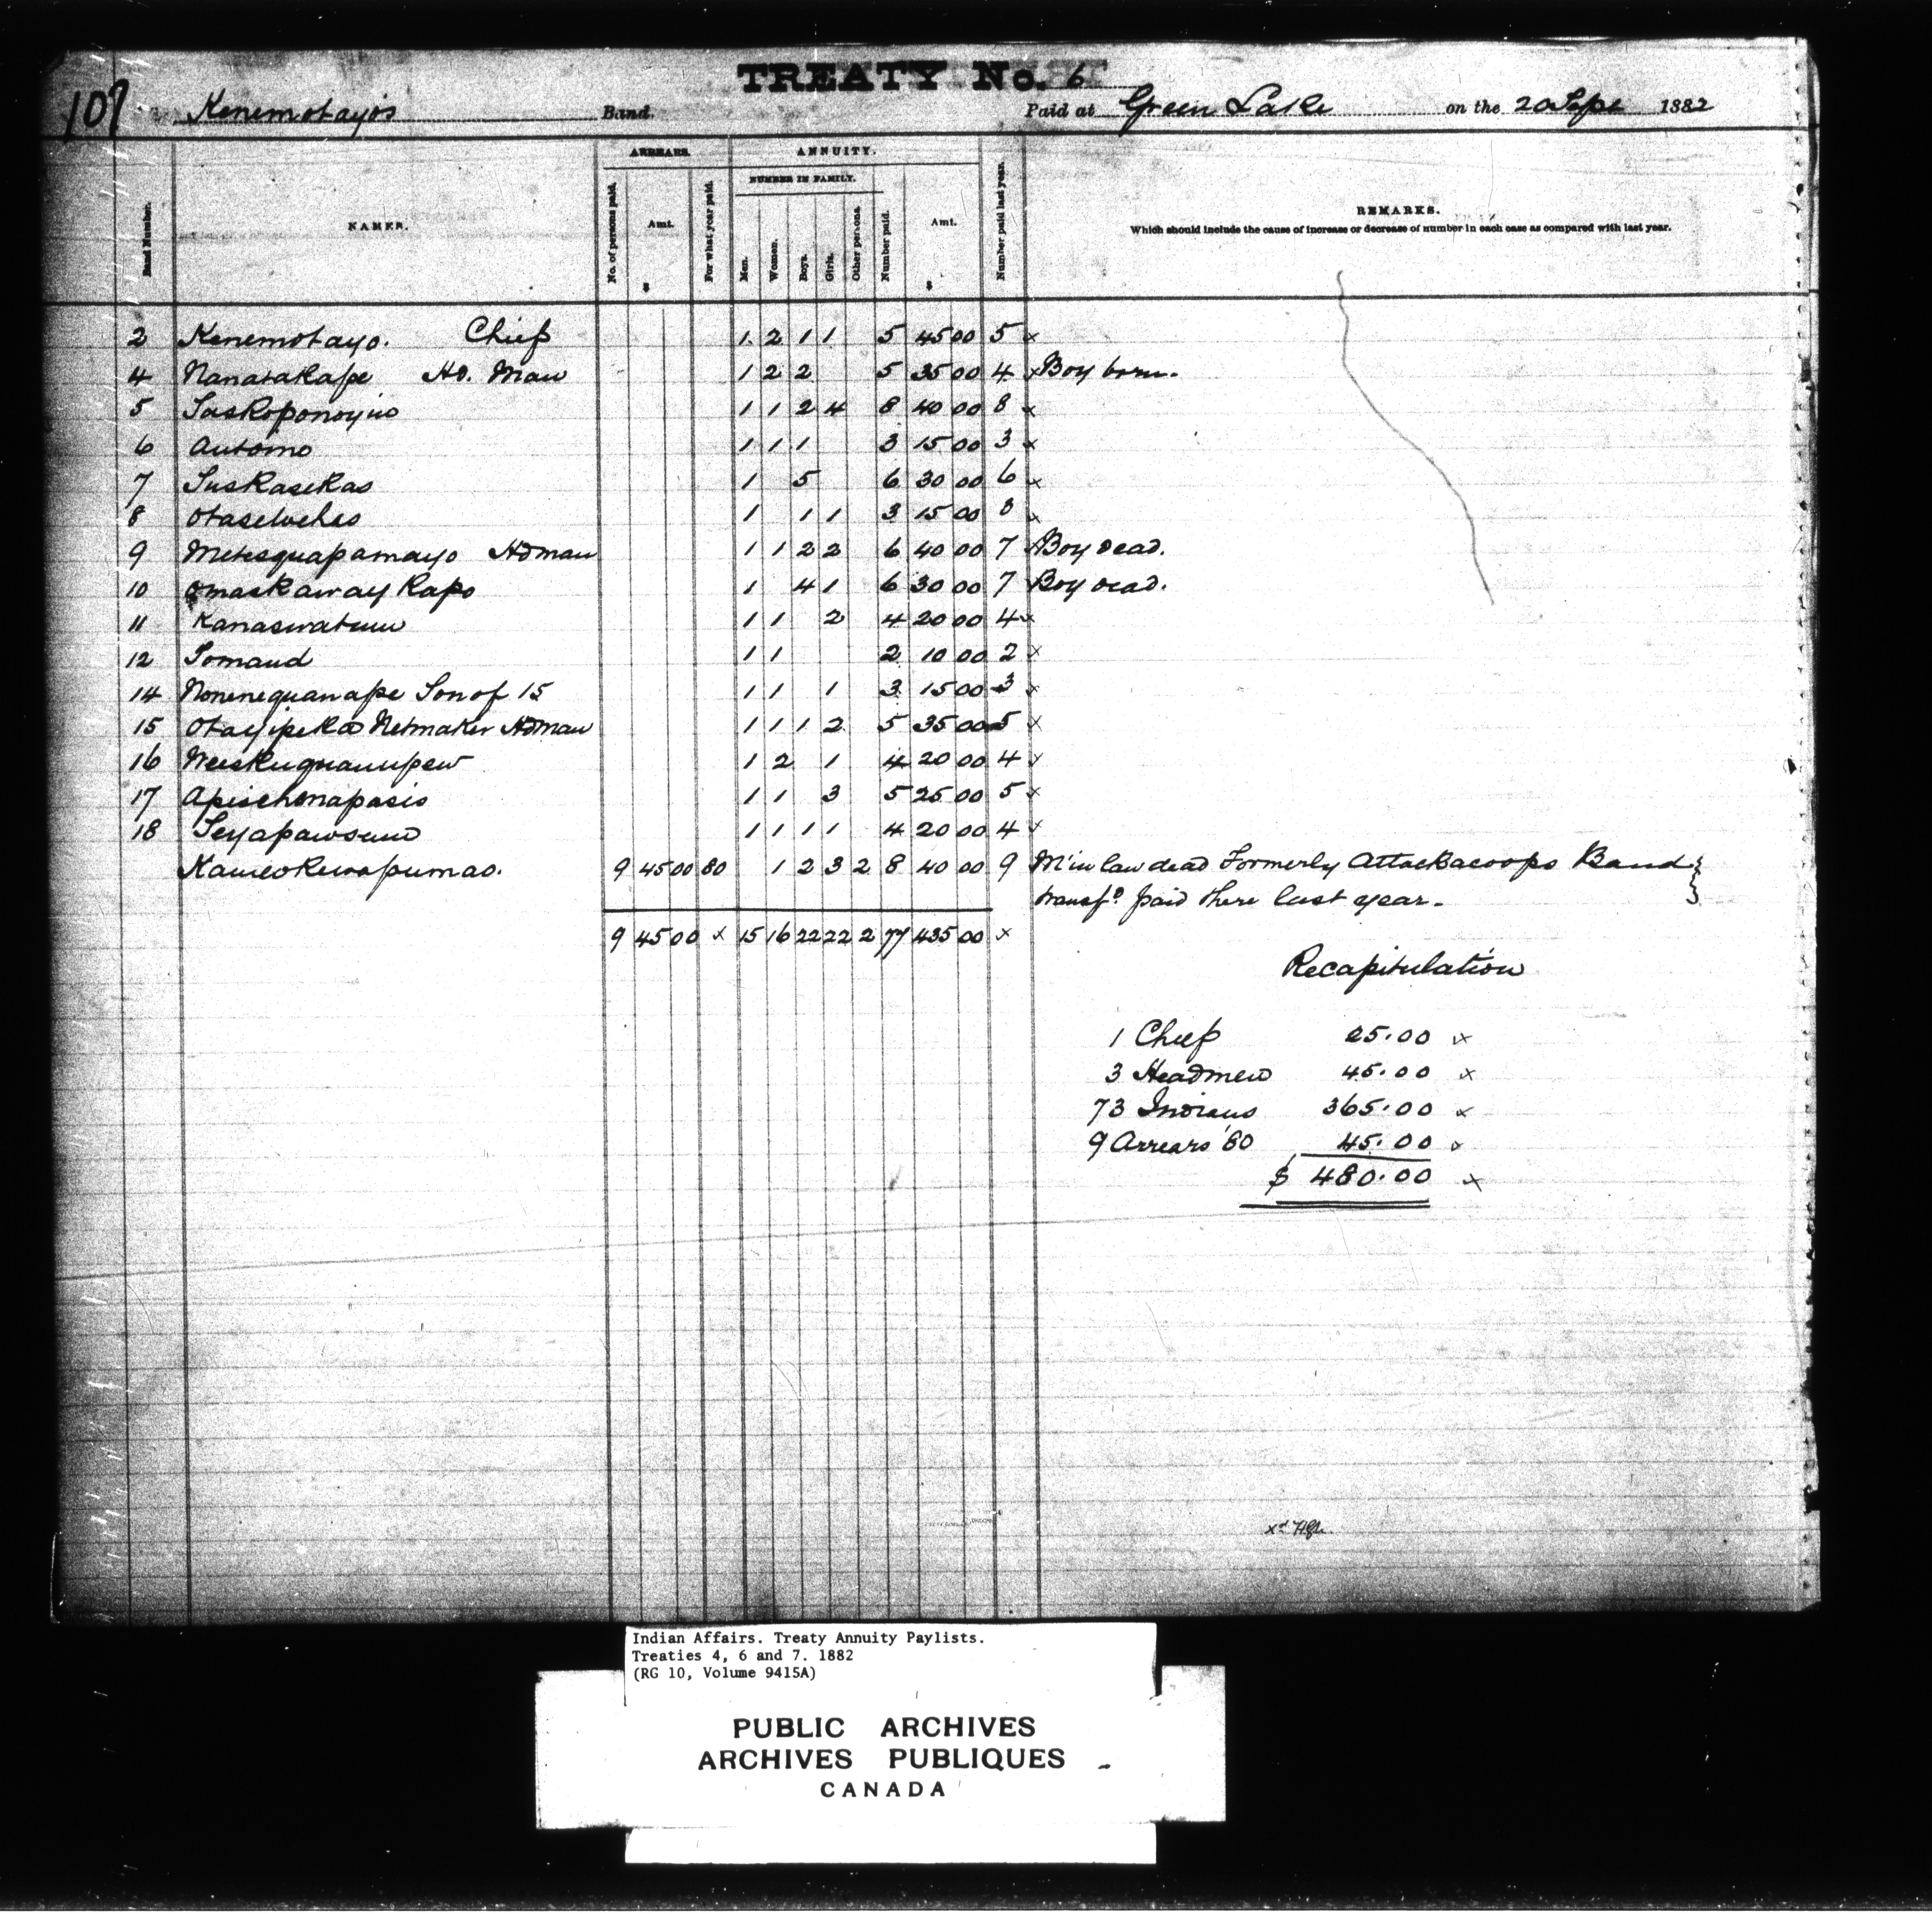 TREATY No. 6
107 Kenemotayo's Band. Paid at Green Lake on the 20 Sept 1882
ARREARS. ANNUITY.
NUMBER IN FAMILY.
Band Number. NAMES. No. of persons paid. Amt. $ For what year paid. Men. Women. Boys. Girls. Other persons. Number paid. Amt. $ Number paid last year. REMARKS.
Which should include the cause of increase or decrease of number in each case as compared with last year.
2 Kenemotayo. Chief 1 2 1 1 5 45 00 5 x
4 Nanatakape Hd. Man 1 2 2 5 35 00 4 x Boy born.
5 Saskoponoyin 1 1 2 4 8 40 00 8 x
6 Automo 1 1 1 3 15 00 3 x
7 Suskasekas 1 5 6 30 00 6 x
8 Otasewehes 1 1 1 3 15 00 3 x
9 Metesquapamayo Hdman 1 1 2 2 6 40 00 7 x Boy dead.
10 Omaskaway Kapo 1 4 1 6 30 00 7 Boy dead.
11 Kanaswatum 1 1 2 4 20 00 4 x
12 Somand 1 1 2 10 00 2 x
14 Nonenequanape Son of 15 1 1 1 3 15 00 3 x
15 Otayipeka Netmaker Hdman 1 1 1 2 5 35 00 5 x
16 Neeskuquanupew 1 2 1 4 20 00 4 x
17 Apischenapasis 1 1 3 5 25 00 5 x
18 Seyapawsum 1 1 1 1 4 20 00 4 x
Kameokewapumao. 9 45 00 80 1 2 3 2 8 40 00 9 M'in law dead Formerly Attackacoops Band
transfd. paid there last year.
9 45 00 x 15 16 22 22 2 77 435 00 x
Recapitulation
1 Chief 25.00 x
3 Headmen 45.00 x
73 Indians 365.00 x
9 Arrears '80 45.00 x
$ 480.00 x
Indian Affairs. Treaty Annuity Paylists.
Treaties 4, 6 and 7. 1882
(RG 10, Volume 9415A)
PUBLIC ARCHIVES
ARCHIVES PUBLIQUES
CANADA